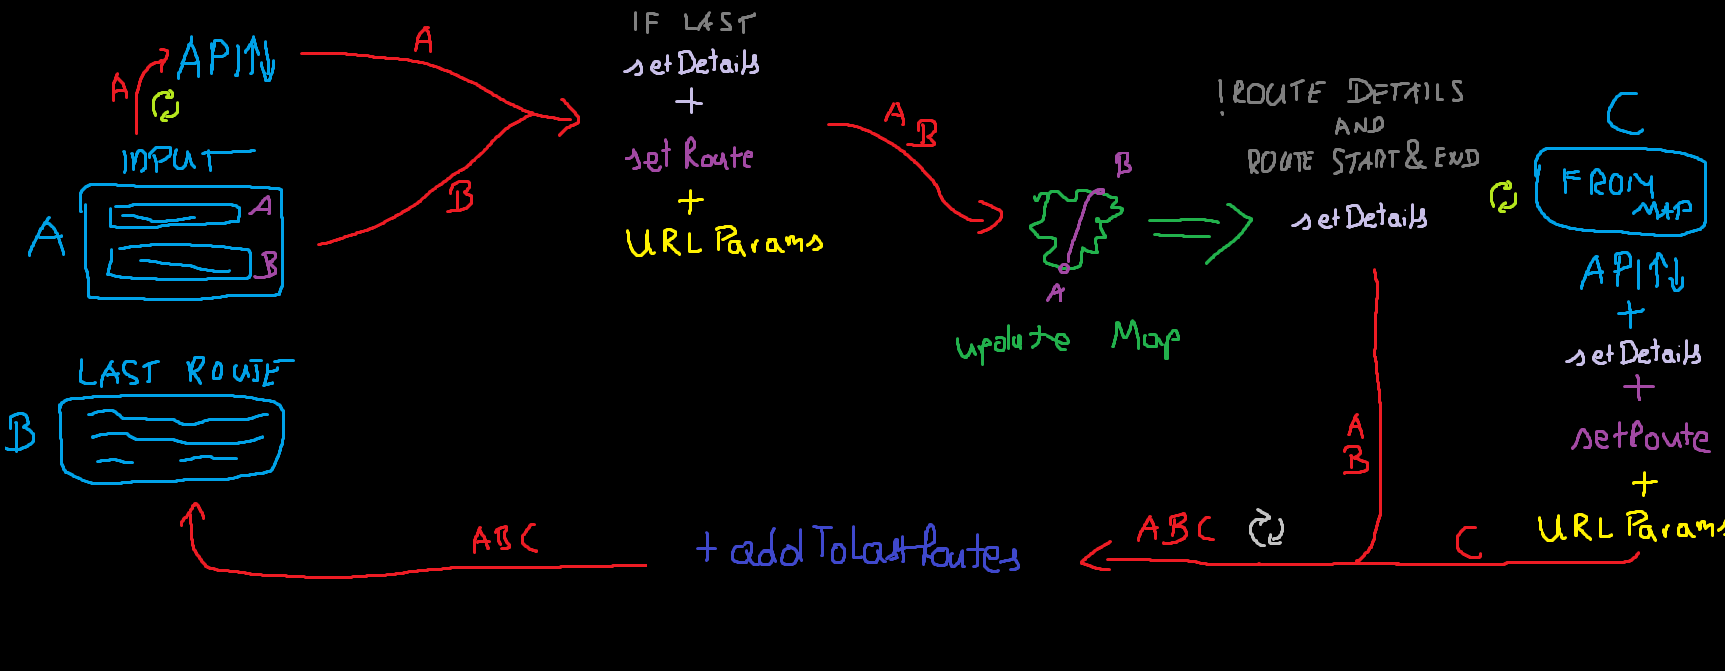 A
API↑↓
A
INPUT
A
B
A
B
IF LAST
setDetails
+
setRoute
+
URLParams
A B
B
A
update Map
!ROUTE DETAILS
AND
ROUTE START & END
setDetails
C
FROM
MAP
API↑↓
+
setDetails
+
setRoute
+
URLParams
LAST ROUTE
B
A
B
ABC
+ addToLastRoutes
ABC
C